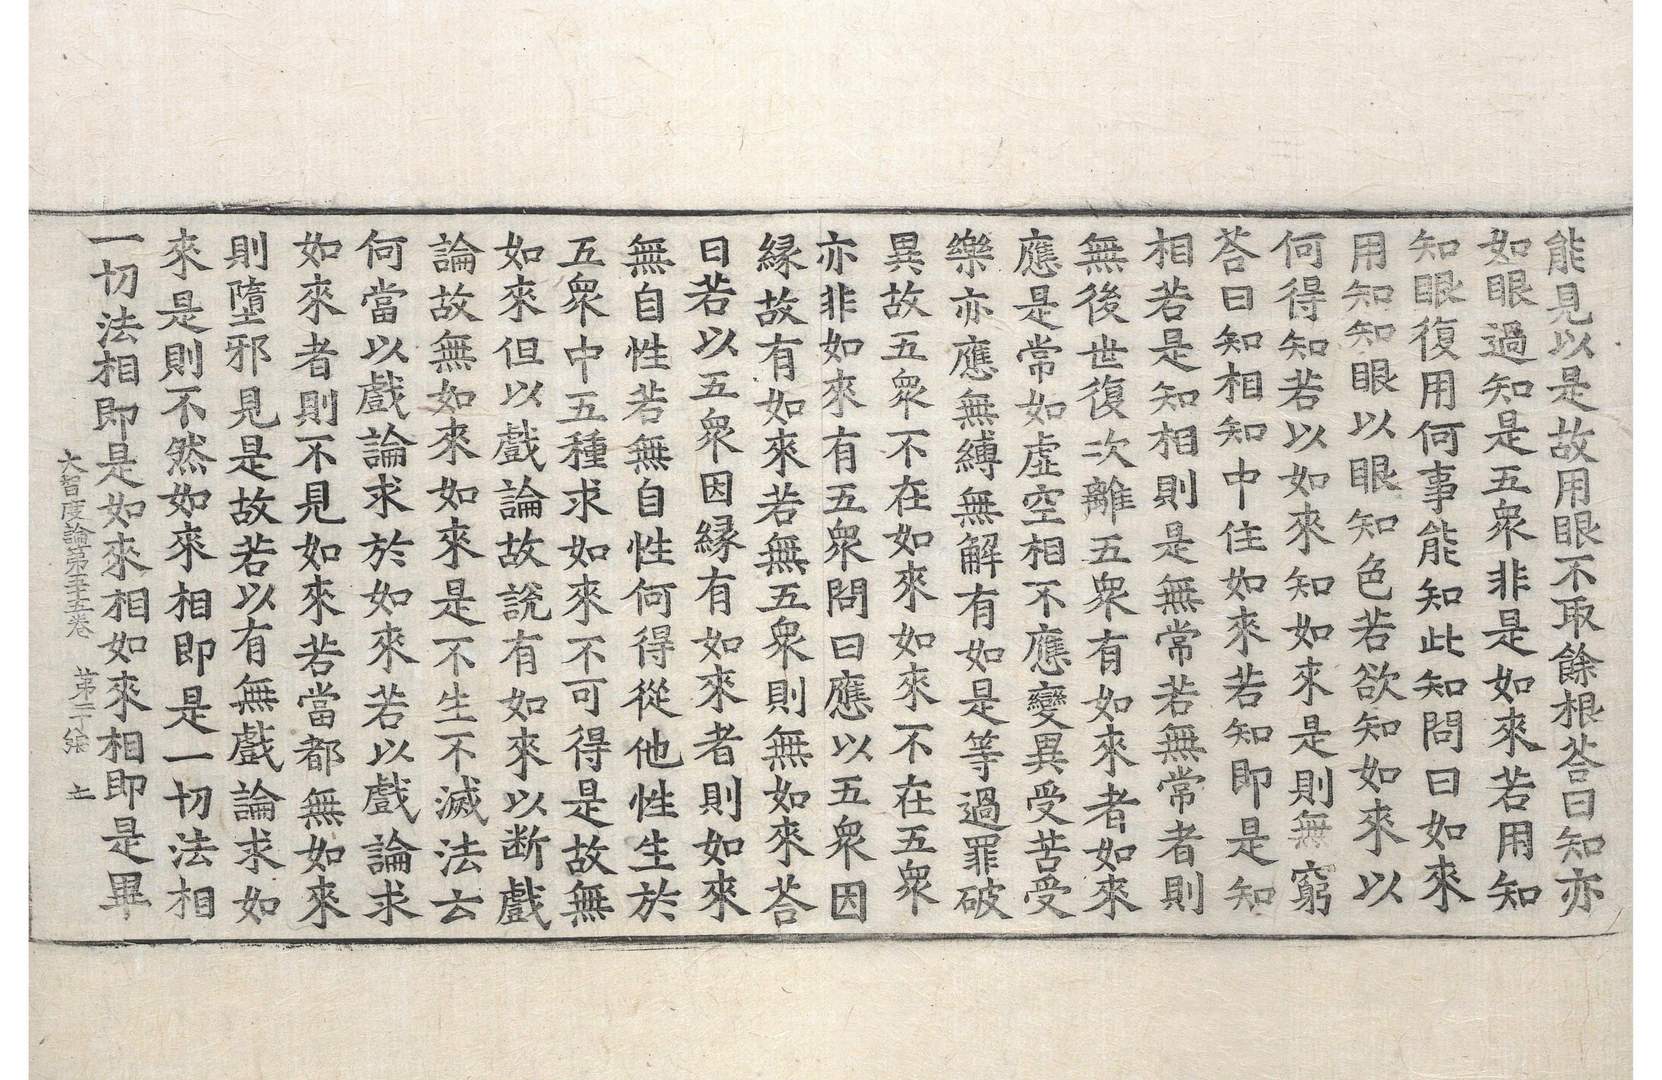 能見以是故用眼不取餘根荅曰知亦
如眼過知是五衆非是如來若用知
知眼復用何事能知此知問曰如來
用知知眼以眼知色若欲知如來以
何得知若以如來知如來是則無窮
荅曰知相知中住如來若知即是知
相若是知相則是無常若無常者則
無後世復次離五衆有如來者如來
應是常如虛空相不應變異受苦受
樂亦應無縛無解有如是等過罪破
異故五衆不在如來如來不在五衆
亦非如來有五衆問曰應以五衆因
緣故有如來若無五衆則無如來荅
曰若以五衆因緣有如來者則如來
無自性若無自性何得從他性生於
五衆中五種求如來不可得是故無
如來但以戲論故說有如來以断戲
論故無如來如來是不生不滅法云
何當以戲論求於如來若以戲論求
如來者則不見如來若當都無如來
則墮邪見是故若以有無戲論求如
來是則不然如來相即是一切法相
一切法相即是如來相如來相即是畢
大智度論第五十五卷 第二十張 土